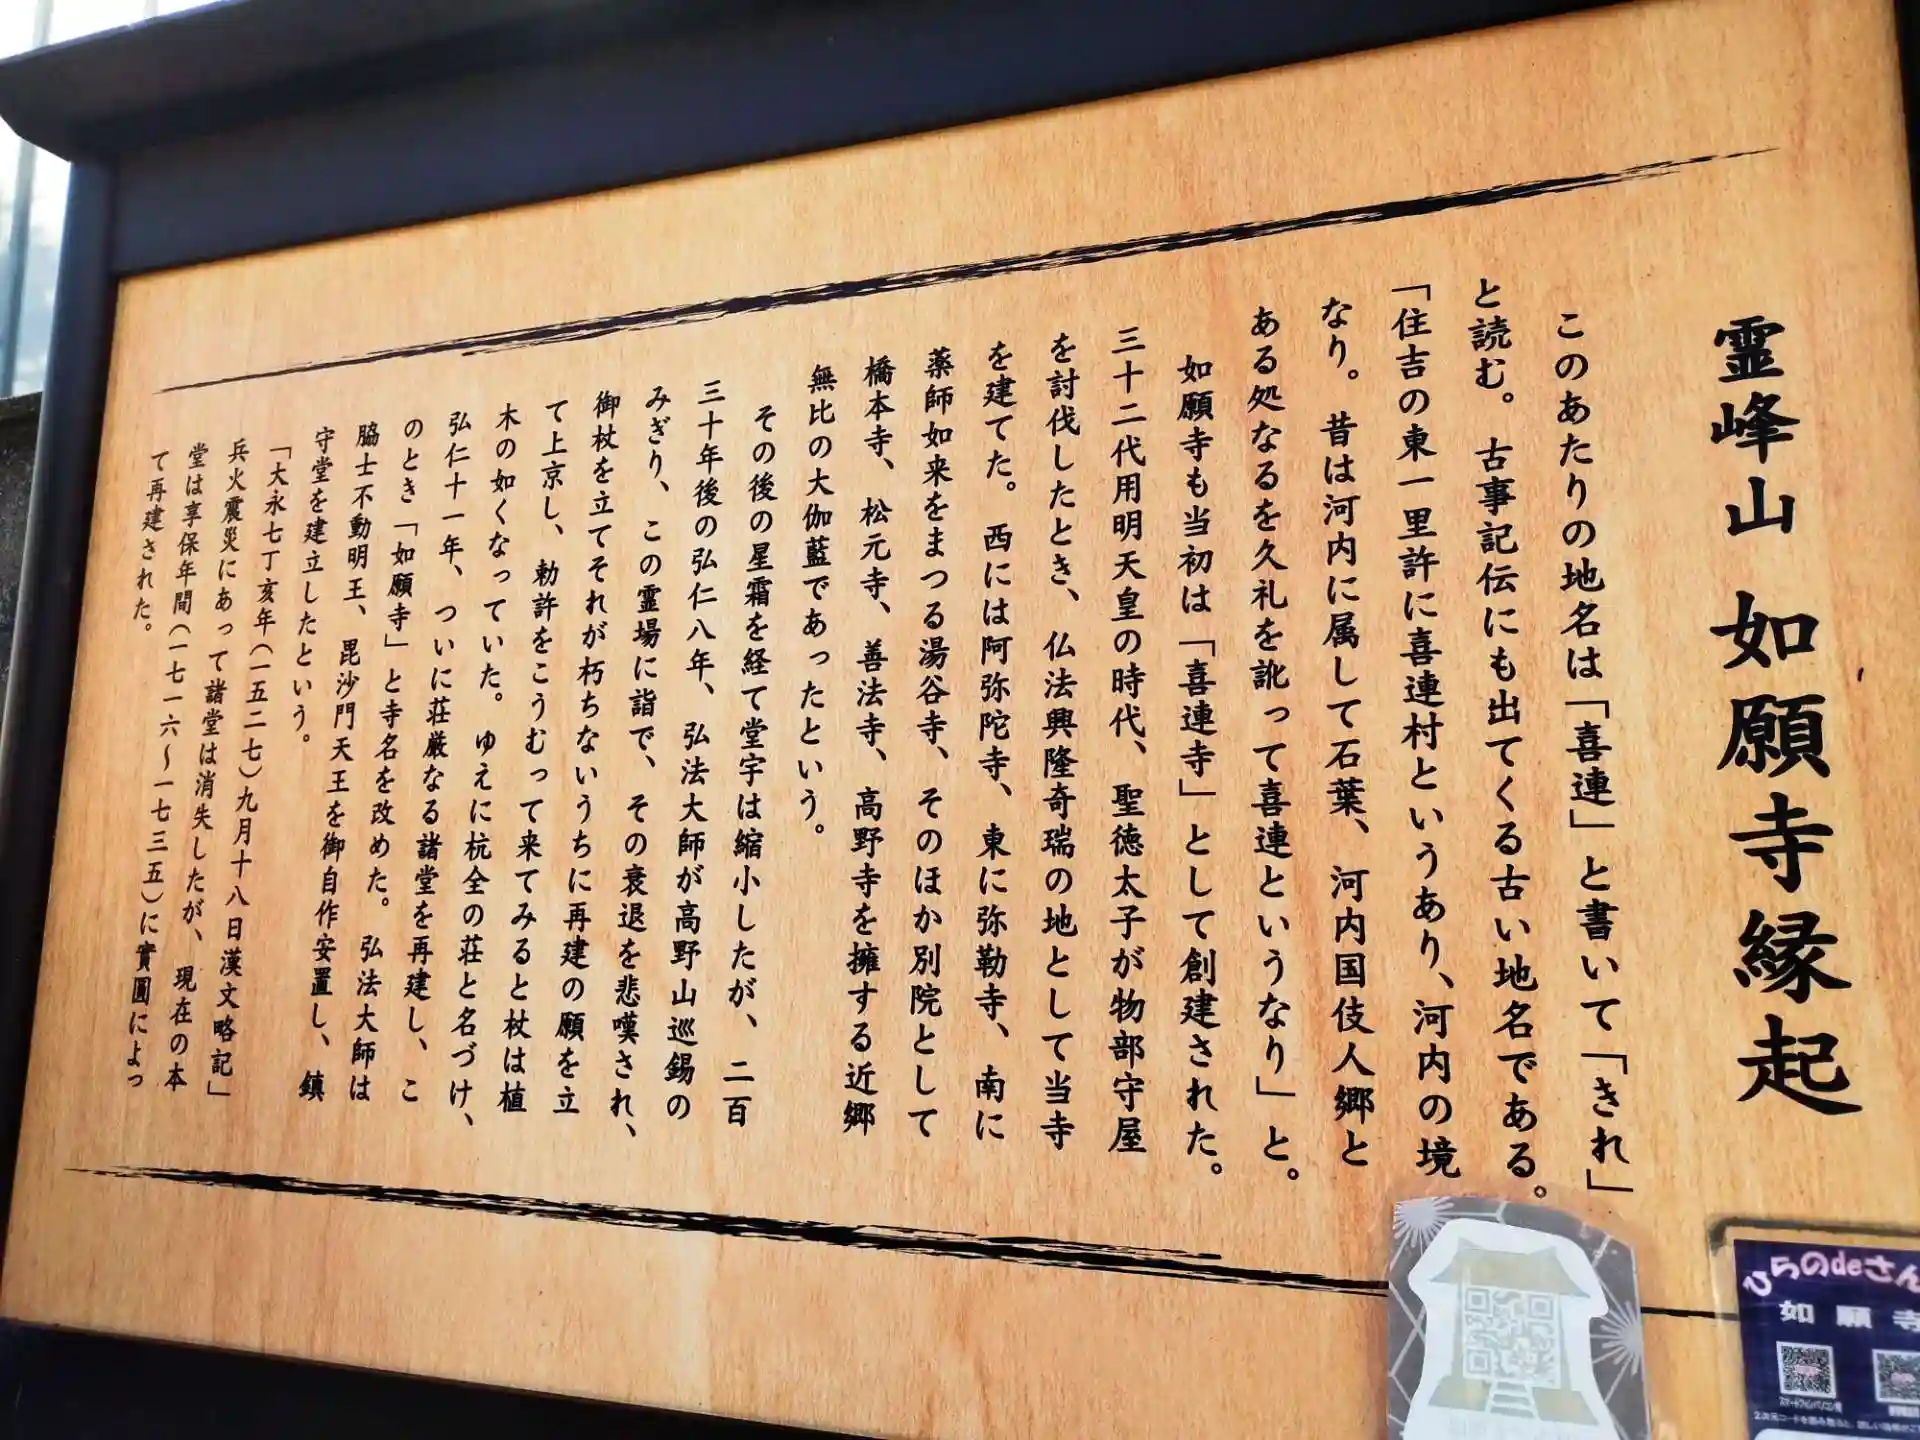 霊峰山 如願寺縁起
このあたりの地名は「喜連」と書いて「きれ」
と読む。古事記伝にも出てくる古い地名である。
「住吉の東一里許に喜連村というあり、河内の境
なり。昔は河内に属して石葉、河内国伎人郷と
ある処なるを久礼を訛って喜連というなり」と。
如願寺も当初は「喜連寺」として創建された。
三十二代用明天皇の時代、聖徳太子が物部守屋
を討伐したとき、仏法興隆奇瑞の地として当寺
を建てた。西には阿弥陀寺、東に弥勒寺、南に
薬師如来をまつる湯谷寺、そのほか別院として
橋本寺、松元寺、善法寺、高野寺を擁する近郷
無比の大伽藍であったという。
その後の星霜を経て堂宇は縮小したが、二百
三十年後の弘仁八年、弘法大師が高野山巡錫の
みぎり、この霊場に詣で、その衰退を悲嘆され、
御杖を立てそれが朽ちないうちに再建の願を立
て上京し、勅許をこうむって来てみると杖は植
木の如くなっていた。ゆえに杭全の荘と名づけ、
弘仁十一年、ついに荘厳なる諸堂を再建し、こ
のとき「如願寺」と寺名を改めた。弘法大師は
脇士不動明王、毘沙門天王を御自作安置し、鎮
守堂を建立したという。
「大永七丁亥年（一五二七）九月十八日漢文略記」
兵火震災にあって諸堂は消失したが、現在の本
堂は享保年間（一七一六～一七三五）に實圓によっ
て再建された。
ひらのdeさん
如願寺
スマートフォン/パソコン用